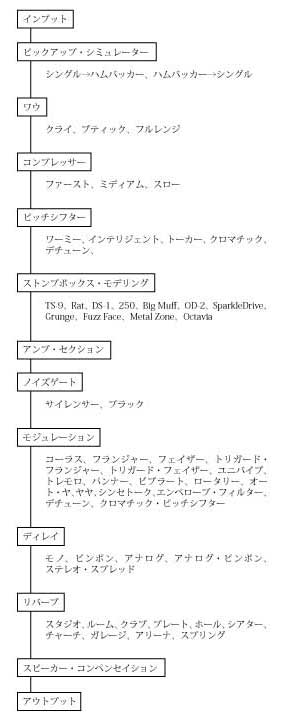 インプット
ピックアップ・シミュレーター
シングル→ハムバッカー、ハムバッカー→シングル
ワウ
クライ、ブティック、フルレンジ
コンプレッサー
ファースト、ミディアム、スロー
ピッチシフター
ワーミー、インテリジェント、トーカー、クロマチック、
デチューン、
ストンプボックス・モデリング
TS-9、Rat、DS-1、250、Big Muff、OD-2、SparkleDrive、
Grunge、Fuzz Face、Metal Zone、Octavia
アンプ・セクション
ノイズゲート
サイレンサー、プラック
モジュレーション
コーラス、フランジャー、フェイザー、トリガード・
フランジャー、トリガード・フェイザー、ユニバイブ、
トレモロ、パンナー、ビブラート、ロータリー、オー
ト・ヤ、ヤヤ、シンセトーク、エンベロープ・フィルター、
デチューン、クロマチック・ピッチシフター
ディレイ
モノ、ピンポン、アナログ、アナログ・ピンポン、
ステレオ・スプレッド
リバーブ
スタジオ、ルーム、クラブ、プレート、ホール、シアター、
チャーチ、ガレージ、アリーナ、スプリング
スピーカー・コンペンセイション
アウトプット